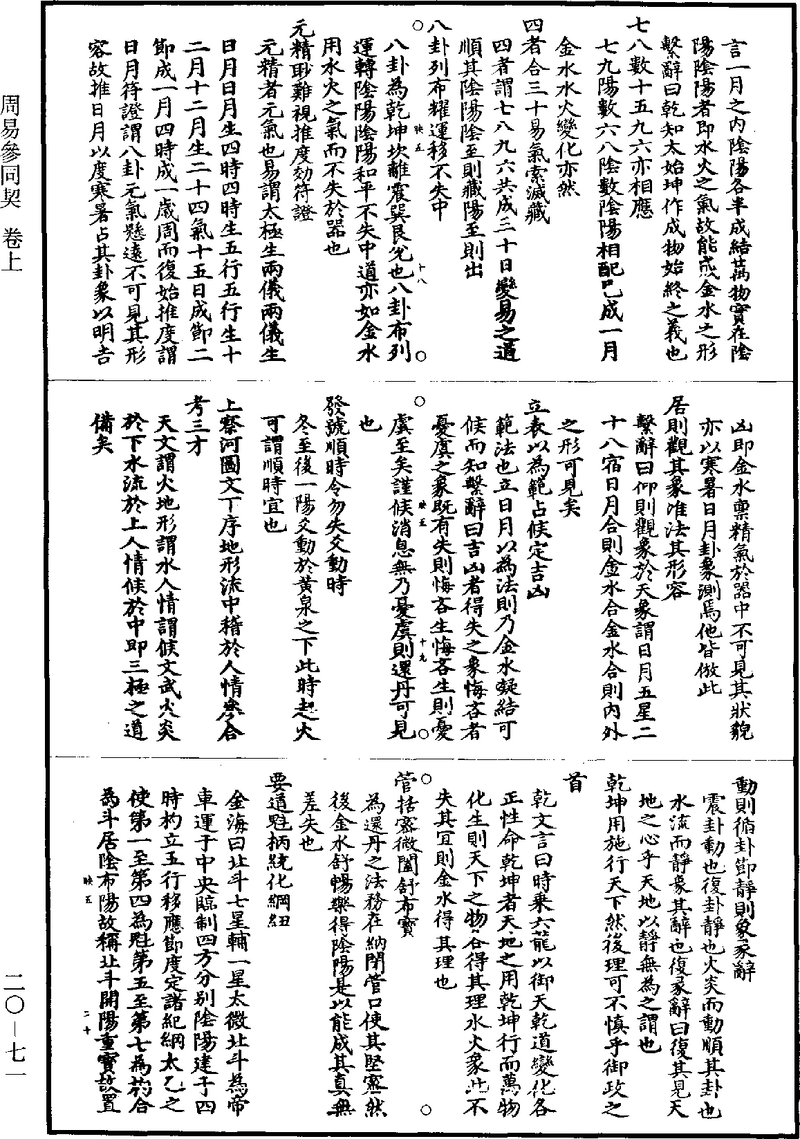 周易參同契 卷上
言一月之內陰陽各半成結萬物實在陰
陽陰陽者即水火之氣故能成金水之形
繫辭曰乾知太始坤作成物始終之義也
七八數十五九六亦相應
七九陽數六八陰數陰陽相配巳成一月
金水水火變化亦然
四者合三十易氣索滅藏
四者謂七八九六共成三十日變易之道
順其陰陽陰至則藏陽至則出
八卦列布耀運移不失中
八卦為乾坤坎離震巽艮兊也八卦布列
運轉陰陽陰陽和平不失中道亦如金水
用水火之氣而不失於器也
元精眇難視推度効符證
元精者元氣也易謂太極生兩儀兩儀生
日月日月生四時四時生五行五行生十
二月十二月生二十四氣十五日成節二
節成一月四時成一歲周而復始推度謂
日月符證謂八卦元氣懸遠不可見其形
容故推日月以度寒暑占其卦象以明吉
映五
十八
凶即金水禀精氣於器中不可見其狀貌
亦以寒暑日月卦象測焉他皆倣此
居則觀其象准法其形容
繫辭曰仰則觀象於天象謂日月五星二
十八宿日月合則金水合金水合則內外
之形可見矣
立表以為範占候定吉凶
範法也立日月以為法則乃金水凝結可
候而知繫辭曰吉凶者得失之象悔吝者
憂虞之象既有失則悔吝生悔吝生則憂
虞至矣謹候消息無乃憂虞則還丹可見
也
發號順時令勿失爻動時
冬至後一陽爻動於黃泉之下此時起火
可謂順時宜也
上察河圖文下序地形流中稽於人情叅合
考三才
天文謂火地形謂水人情謂候文武火炎
於下水流於上人情候於中即三極之道
備矣
映五
十九
動則循卦節靜則象彖辭
震卦動也復卦靜也火炎而動順其卦也
水流而靜象其辭也復彖辭曰復其見天
地之心乎天地以靜無為之謂也
乾坤用施行天下然後理可不慎乎御政之
首
乾文言曰時乘六龍以御天乾道變化各
正性命乾坤者天地之用乾坤行而萬物
化生則天下之物各得其理水火象此不
失其宜則金水得其理也
管括密微闔舒布寶
為還丹之法務在納閉管口使其堅密然
後金水舒暢樂得陰陽是以能成其真無
差失也
要道魁柄統化綱紐
金海曰北斗七星輔一星太微北斗為帝
車運于中央臨制四方分别陰陽建于四
時杓立五行移應節度定諸紀綱太乙之
使第一至第四為魁第五至第七為杓合
為斗居陰布陽故稱北斗開陽重寶故置
映五
二十
二〇—七一